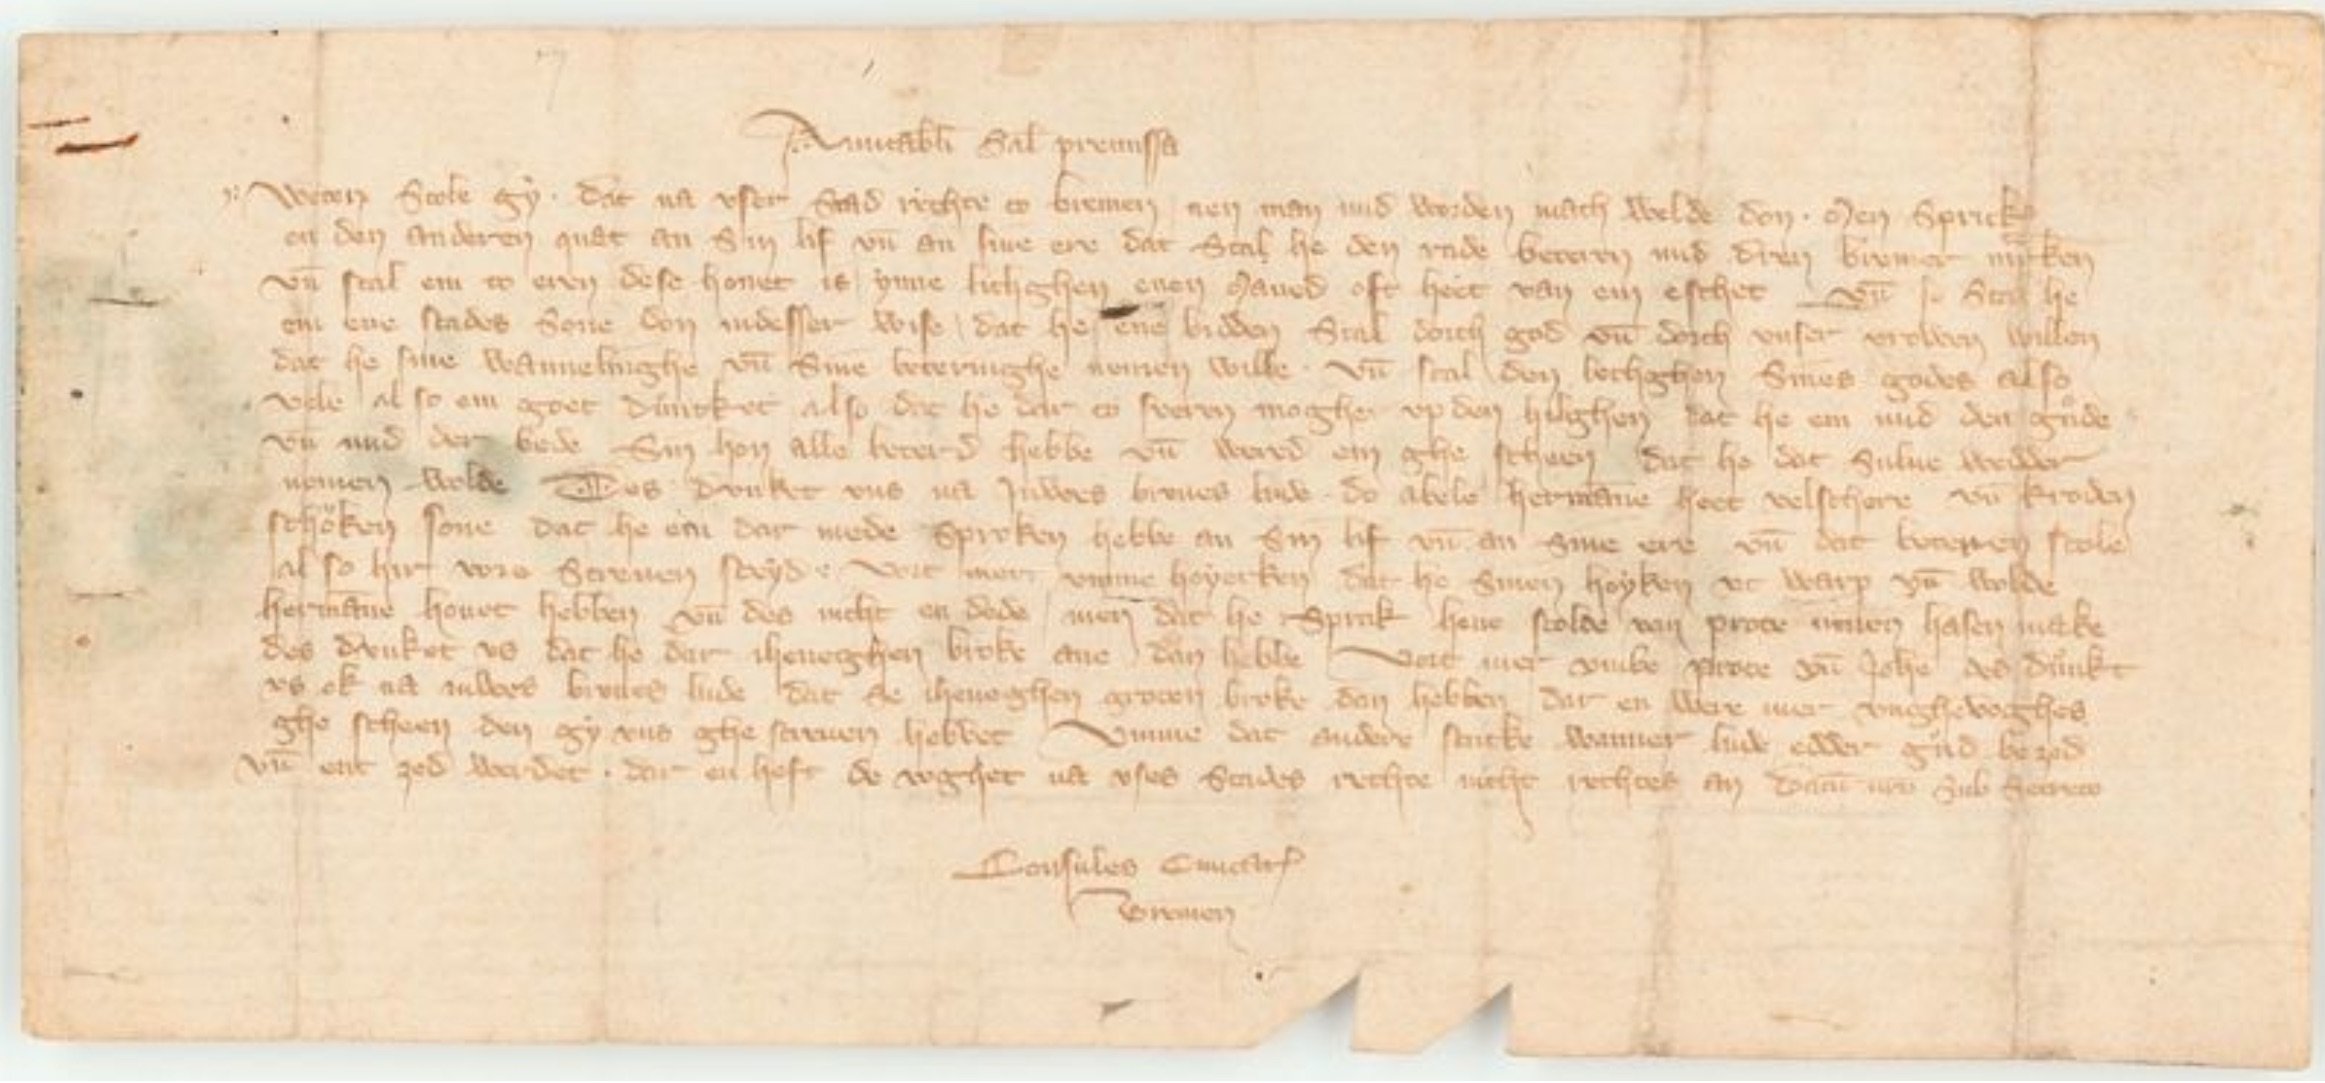 Amicabili Sal premissa
Weten Scole gy · dat na vser Stad rechte to bremen nen man mid worden mach Welde don · Men Sprickt
en den anderen quat an Sin lif vn̄ an sine ere dat Scal he den rade beteren mid dren bremer marken
vn̄ scal em to eren dese honet is ynne licghen enen Maned oft heet van em eschet vn̄ so Scal he
em ene stades Sone don in desser wise dat he ene bidden Scal dorch god vn̄ dorch vnser vrowen willen
dat he sine wannelinghe vn̄ Sine beteringhe nemen wille · Vn̄ scal den Sines godes also
vele also em goet duncket also dat he dar to sweren moghe vp den hilghen dat he em mid den gude
vn̄ mid der bede Sin hon alle beterd hebbe vn̄ werd em ghe scheen dat he dat Sulue wedder
nemen wolde Des dunket vns na Juwes breues lude · do abele hermāne heet velschere vn̄ kroden
schoken sone dat he em dar mede Sproken hebbe an Sin lif vn̄ an Sine ere vn̄ dat beteren scole
also hir vore Screuen steyd · Vort mer vmme hoyerken dat he Sinen hoyken vt warp vn̄ wolde
hermāne houet hebben vn̄ des nicht en dede men dat he Sprak he scolde van hasen make
des dunket vs dat he dar iheneghen broke ane dan hebbe Vort mer vmbe vn̄ Johē des dunkt
vs ok na iuwes breues lude dat se iheneghen groten broke dan hebben dar en were mer vnghevoghes
ghe scheen den gy vns ghe screuen hebbet Vmme dat andere stucke wanner lude edder gud be zed
vn̄ ent zed werdet · dar en heft de voghet na vses Stades rechte nicht rechtes an Sub Secreto
Consules Ciuitatis
Bremen